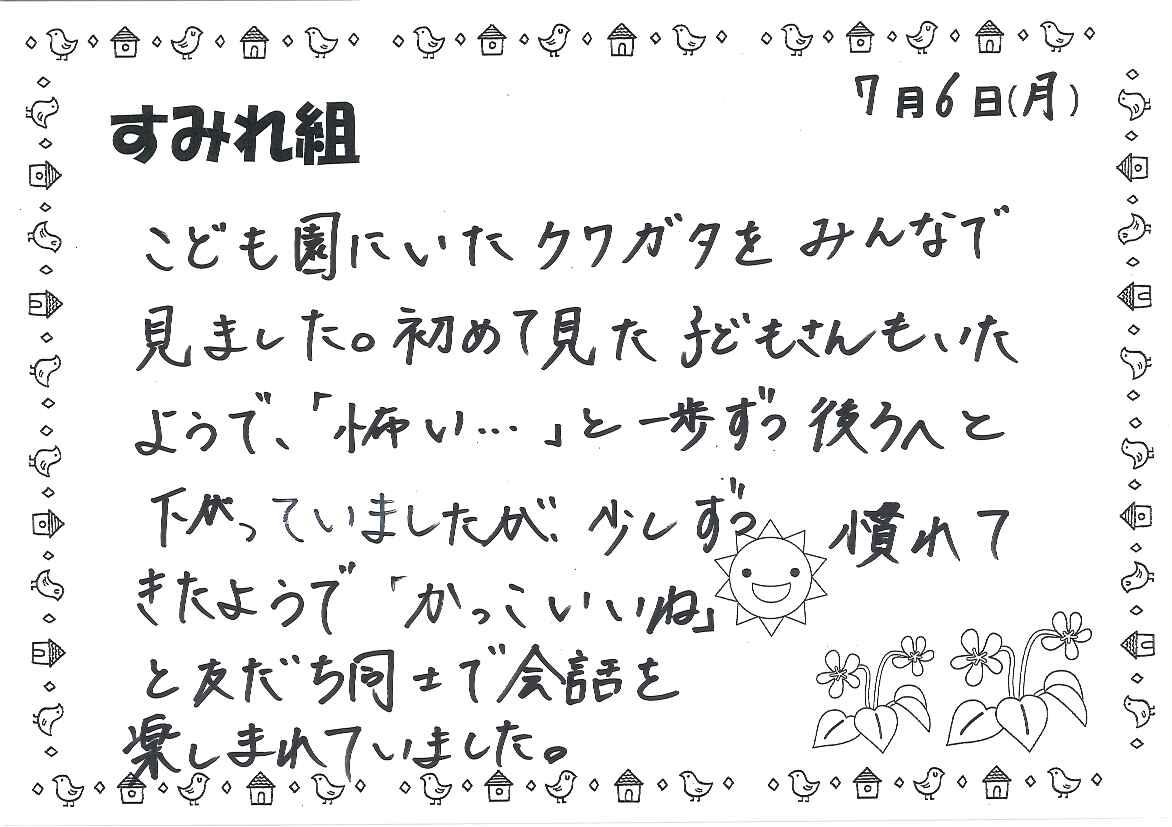 7月6日(月)
すみれ組
こども園にいたクワガタをみんなで
見ました。初めて見た子どもさんもいた
ようで、「怖い…」と一歩ずつ後ろへと
下がっていましたが、少しずつ慣れて
きたようで「かっこいいね」
と友だち同士で会話を
楽しまれていました。